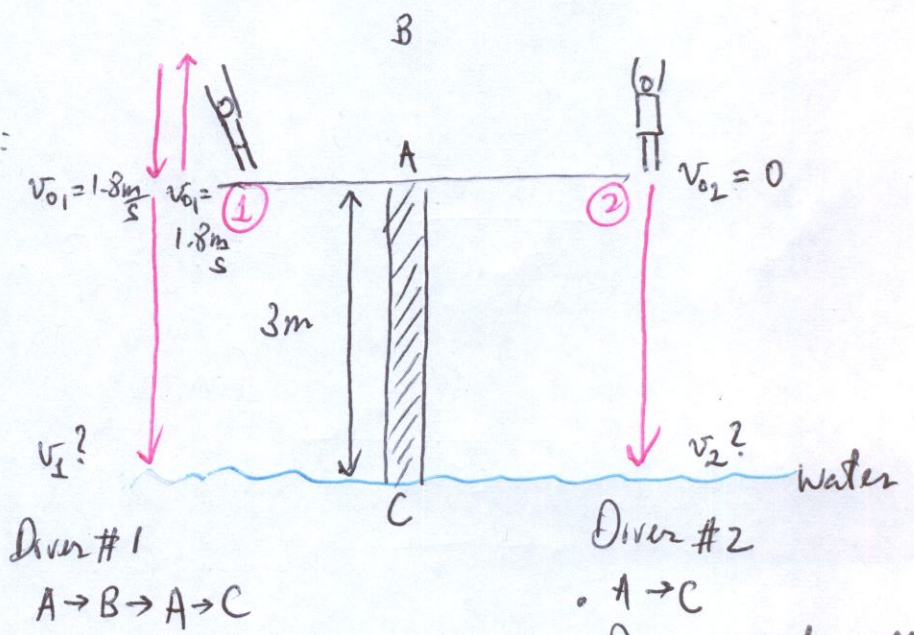 B
A
v₀₁ = 1.8 m/s
v₀₁ = 1.8 m/s
1
2
v₀₂ = 0
3m
v₁?
v₂?
water
C
Diver #1
Diver #2
A → B → A → C
. A → C